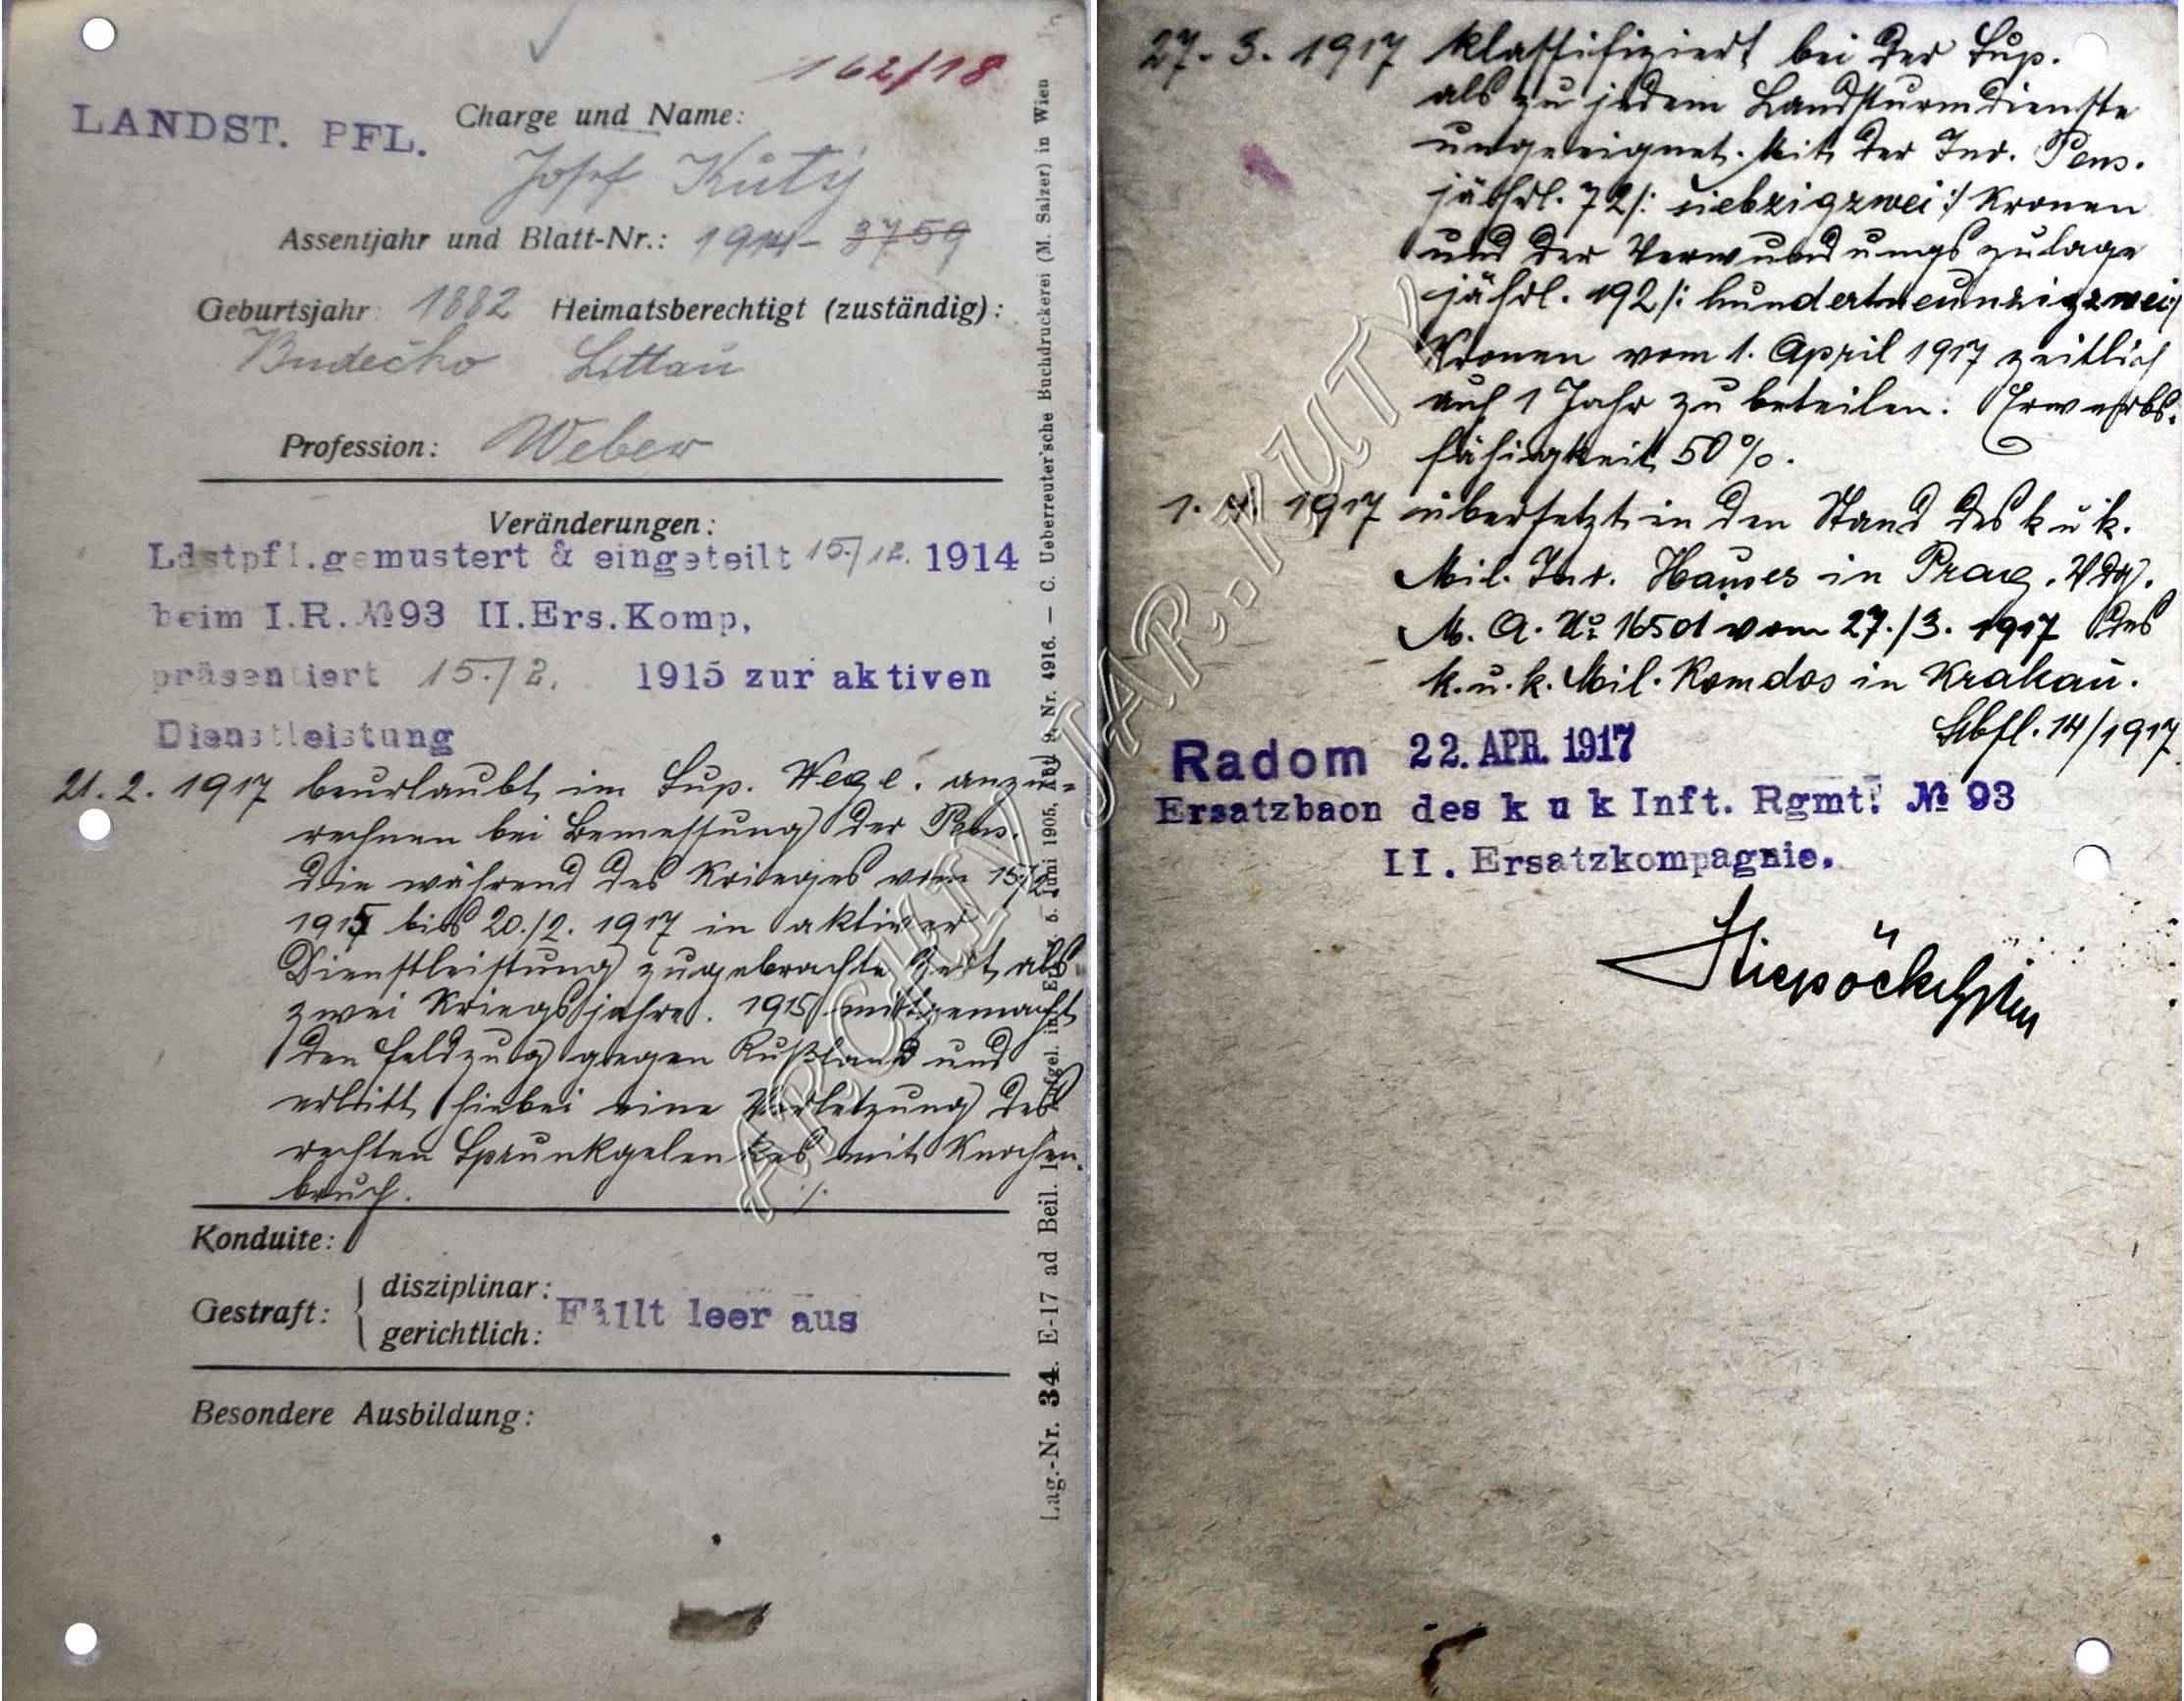 162/18
LANDST. PFL.
Charge und Name:
Josef Kutý
Assentjahr und Blatt-Nr.: 1914- 3759
Geburtsjahr: 1882 Heimatsberechtigt (zuständig):
Budečko Littau
Profession: Weber
Veränderungen:
Ldstpfl.gemustert & eingeteilt 15./12. 1914
beim I.R.№93 II.Ers.Komp,
präsentiert 15./2. 1915 zur aktiven
Dienstleistung
21. 2. 1917 beurlaubt im Sup. Wege. anzu-
rechnen bei Bemessung der Pens.
die während des Krieges vom 15/2
1915 bis 20./2. 1917 in aktiver
Dienstleistung zugebrachte Zeit als
zwei Kriegsjahre. 1915 mitgemacht
den Feldzug gegen Rußland und
erlitt hiebei eine Verletzung des
rechten Sprunkgelenkes mit Knochen-
bruch. ./.
Konduite:
Gestraft: disziplinar:
gerichtlich:
Fällt leer aus
Besondere Ausbildung:
Lag.-Nr. 34. E-17 ad Beil. Aufgel. im Juni 1905, Abt. 9, Nr. 4916. — C. Ueberreuter'sche Buchdruckerei (M. Salzer) in Wien
ARCHIV JAR. KUTÝ
27. 3. 1917 klassifiziert bei der Sup.
als zu jedem Landsturmdienste
ungeeignet. Mit der Inv. Pens.
jährl. 72/: siebzigzwei :/ Kronen
und der Verwundungszulage
jährl. 192/: hundertneunzigzwei :/
Kronen vom 1. April 1917 zeitlich
auf 1 Jahr zu beteilen. Erwerbs-
fähigkeit 50%.
1. 4. 1917 übersetzt in den Stand des k u k.
Mil. Inv. Hauses in Prag. Vdg.
M. A. № 1650 vom 27./3. 1917 des
k. u. k. Mil. Komdos in Krakau.
14/1917
Radom 22. APR. 1917
Ersatzbaon des k u k Inft. Rgmt. № 93
II. Ersatzkompagnie.